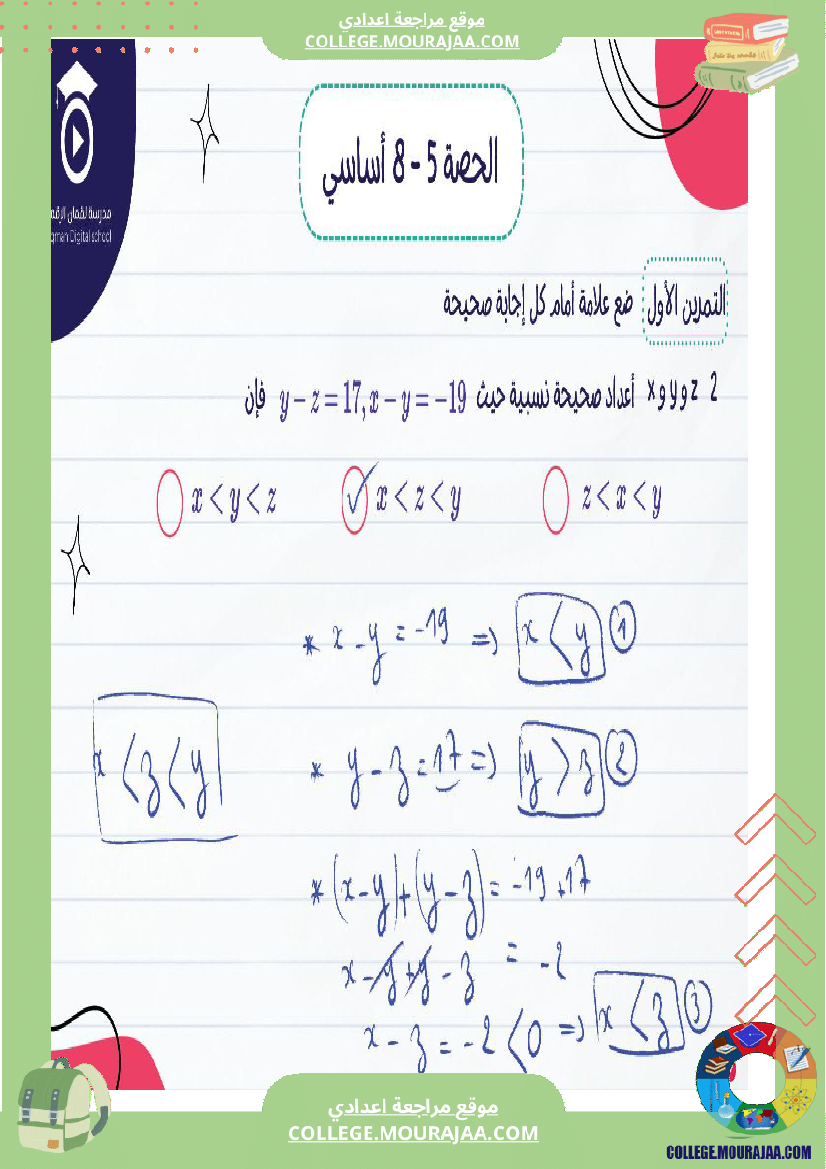 موقع مراجعة اعدادي
COLLEGE.MOURAJAA.COM
مدرسة لقمان الرقم
qman Digital school
الحصة 5 - 8 أساسي
التمرين الأول ضع علامة أمام كل إجابة صحيحة
2 x و y و z أعداد صحيحة نسبية حيث y − z = 17, x − y = −19 فإن
z < x < y
x < z < y ✓
x < y < z
* x - y = -19 => x < y ①
* y - z = 17 => y > z ②
x < z < y
* (x-y)+(y-z) = -19 + 17
x - y + y - z = -2
x - z = -2 < 0 => x < z ③
موقع مراجعة اعدادي
COLLEGE.MOURAJAA.COM
COLLEGE.MOURAJAA.COM